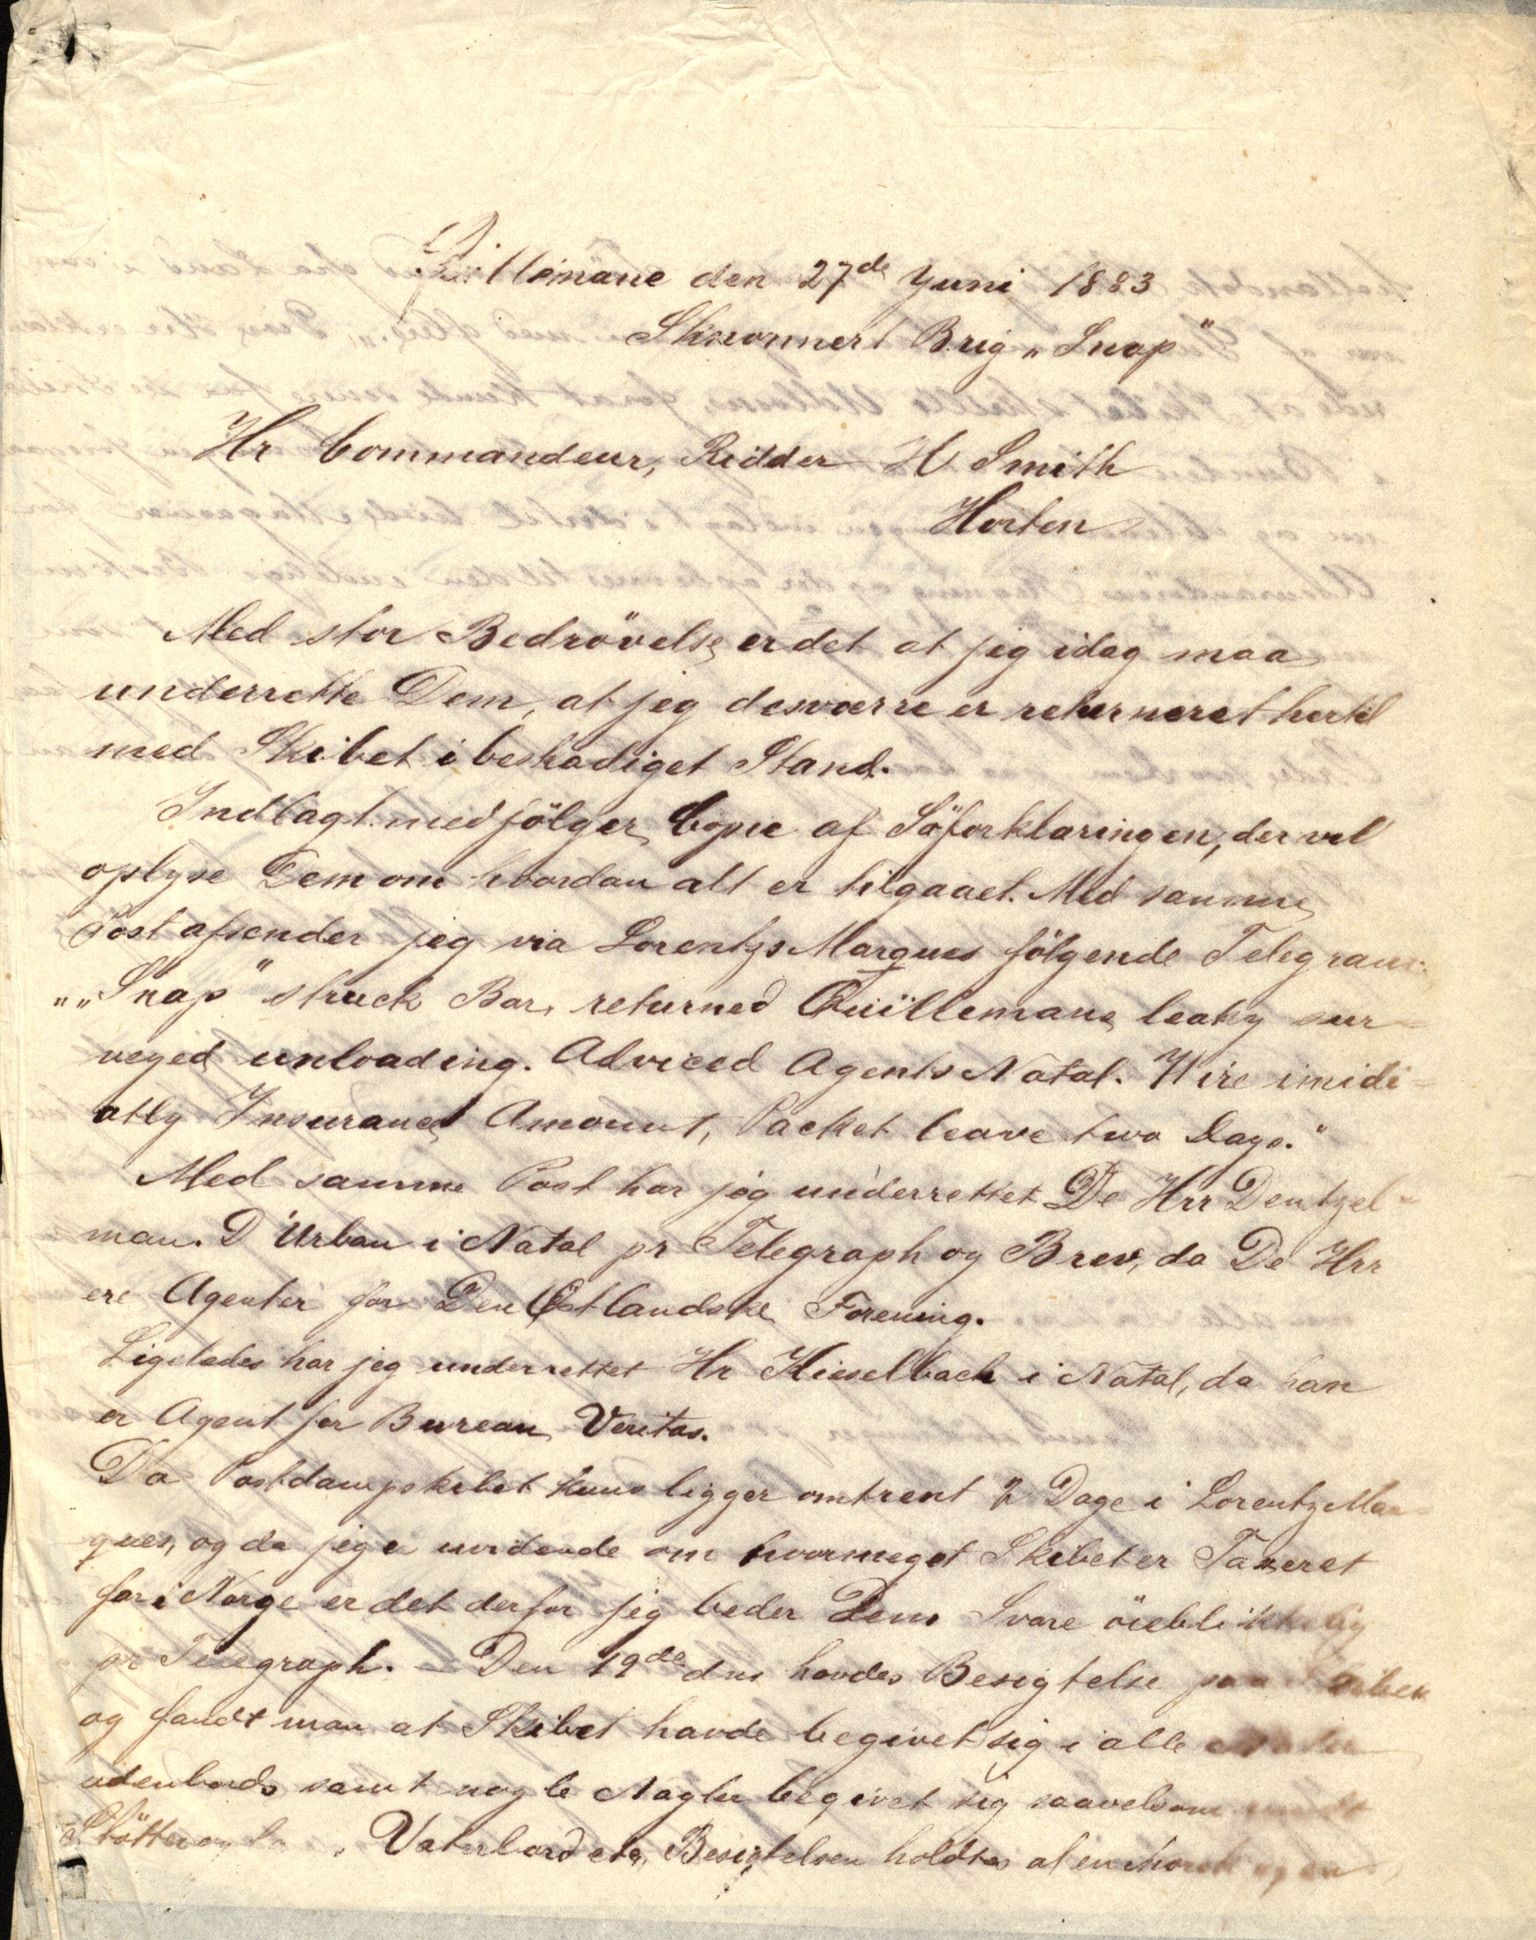 Quillimane den 27de Juni 1883
Skonnert Brig „Snap"
Hr Commandeur, Ridder H Smith
Horten
Med stor Bedrövelse er det at jeg idag maa
underrette Dem, at jeg desværre er returneret hertil
med Skibet i beskadiget Stand.
Indlagt medfölger Copie af Söforklaringen, der vil
oplyse Dem om hvordan alt er tilgaaet. Med samme
Post afsender jeg via Lorentzs Marques fölgende Telegram:
„„Snap" struck Bar, returned Quillemane leaky sur=
veyed unloading. Adviced Agents Natal. Wire imidi=
atly Insurance Amount, Packet leave two Days."
Med samme Post har jeg underrettet De Hrr Dentzel=
man. D'Urban i Natal pr Telegraph og Brev, da De Hrr
ere Agenter for Den Östlandske Forening.
Ligeledes har jeg underrettet Hr Kieselbach i Natal, da han
er Agent for Bureau Veritas.
Da Postdampskibet kuns ligger omtrent 2 Dage i Lorentz Mar=
ques, og da jeg er uvidende om hvormeget Skibet er Taxeret
for i Norge er det derfor jeg beder Dem Svare öieblikkelig
pr Telegraph. – Den 19de ds havdes Besigtelse paa Skibet
og fandt man at Skibet havde begivet sig i alle Nader
udenbords samt nogle Nagler begivet sig saavelsom
Stötter og Vaterbord etc, Besigtelsen holdtes af en Norsk og en